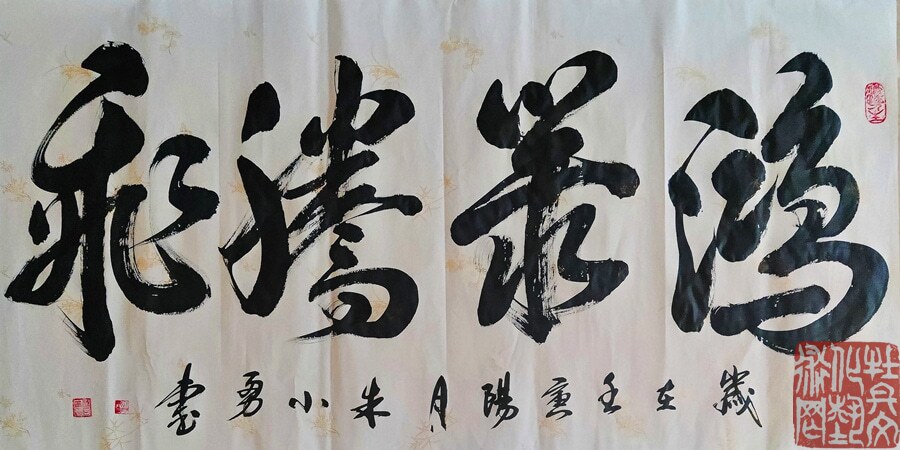 鴻業騰飛
歲在壬寅陽月朱小勇書